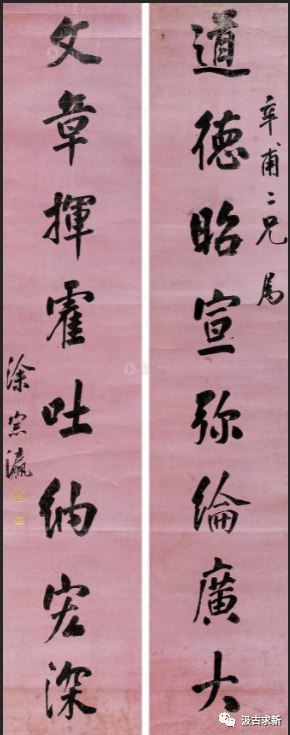 道德昭宣弥綸廣大
辛甫二兄属
文章揮霍吐纳宏深
涂宗瀛
汲古求新